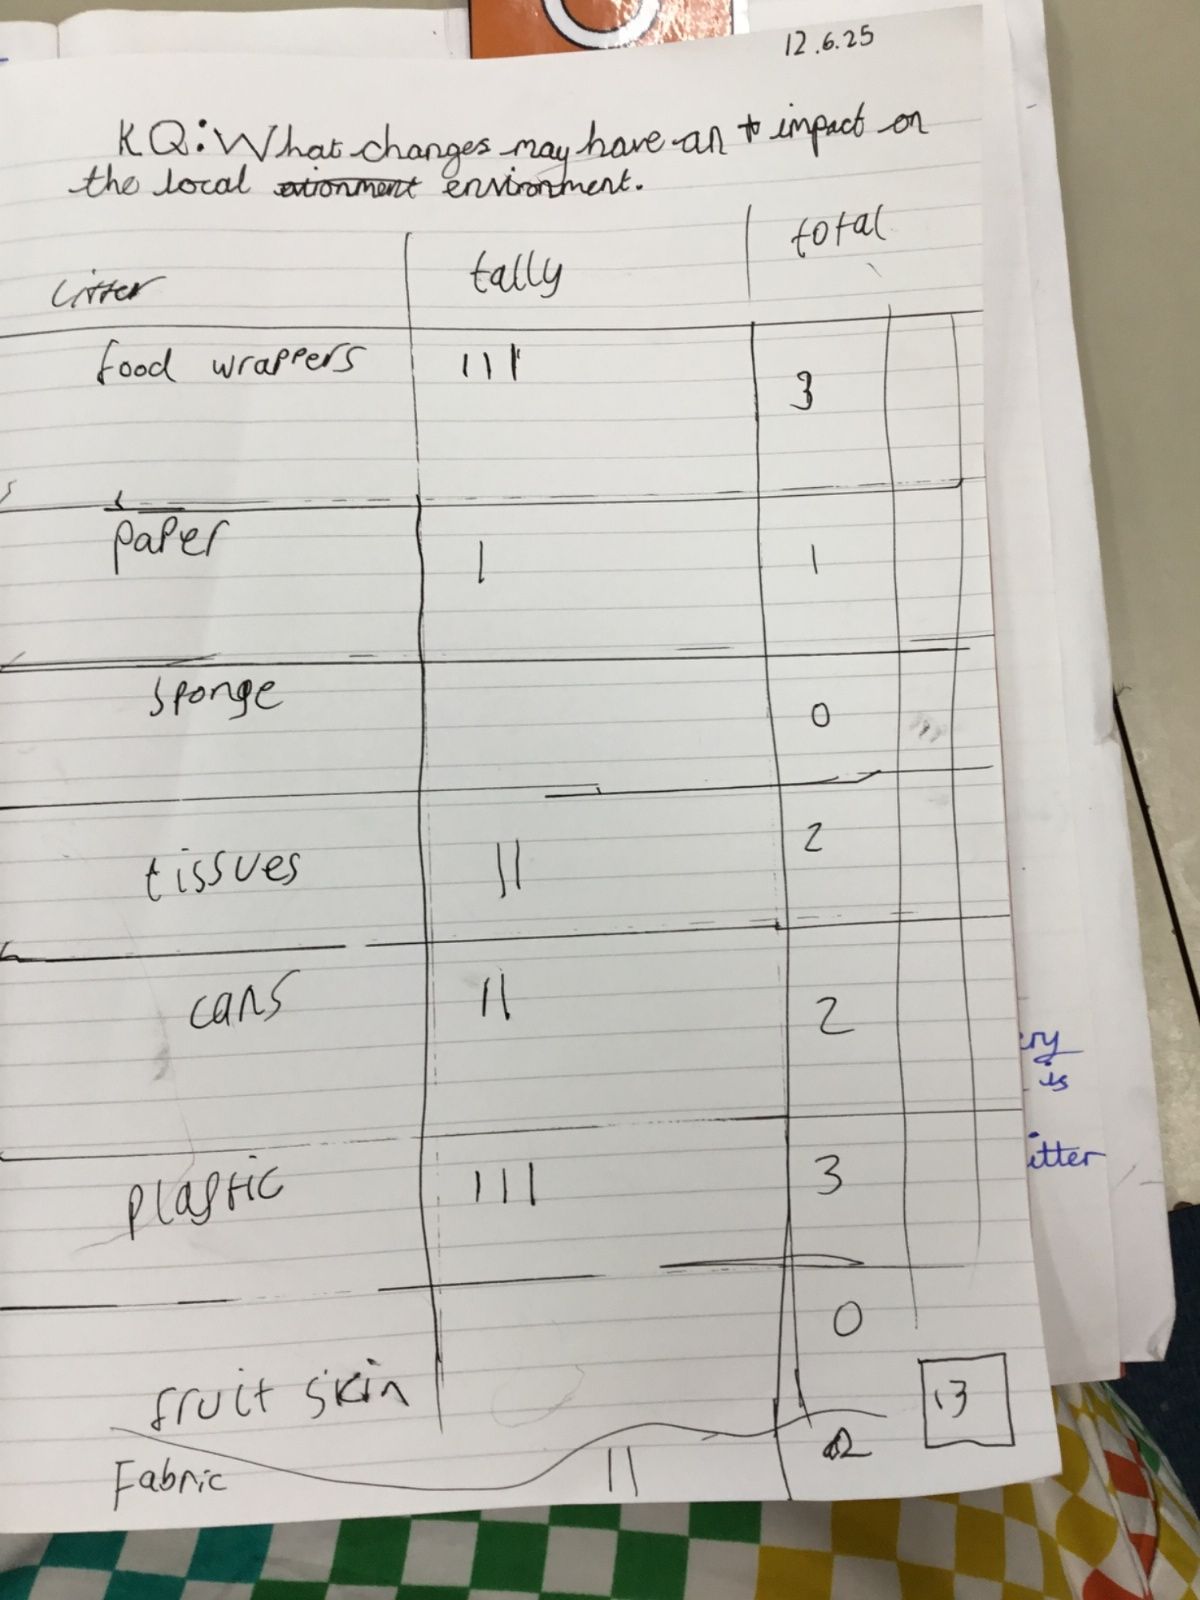 12.6.25
KQ: What changes may have an to impact on
the local environment.
Litter tally total
food wrappers III 3
paper I 1
sponge 0
tissues II 2
cans II 2
plastic III 3
fruit skin 0
13
Fabric II 2
ery
is
itter